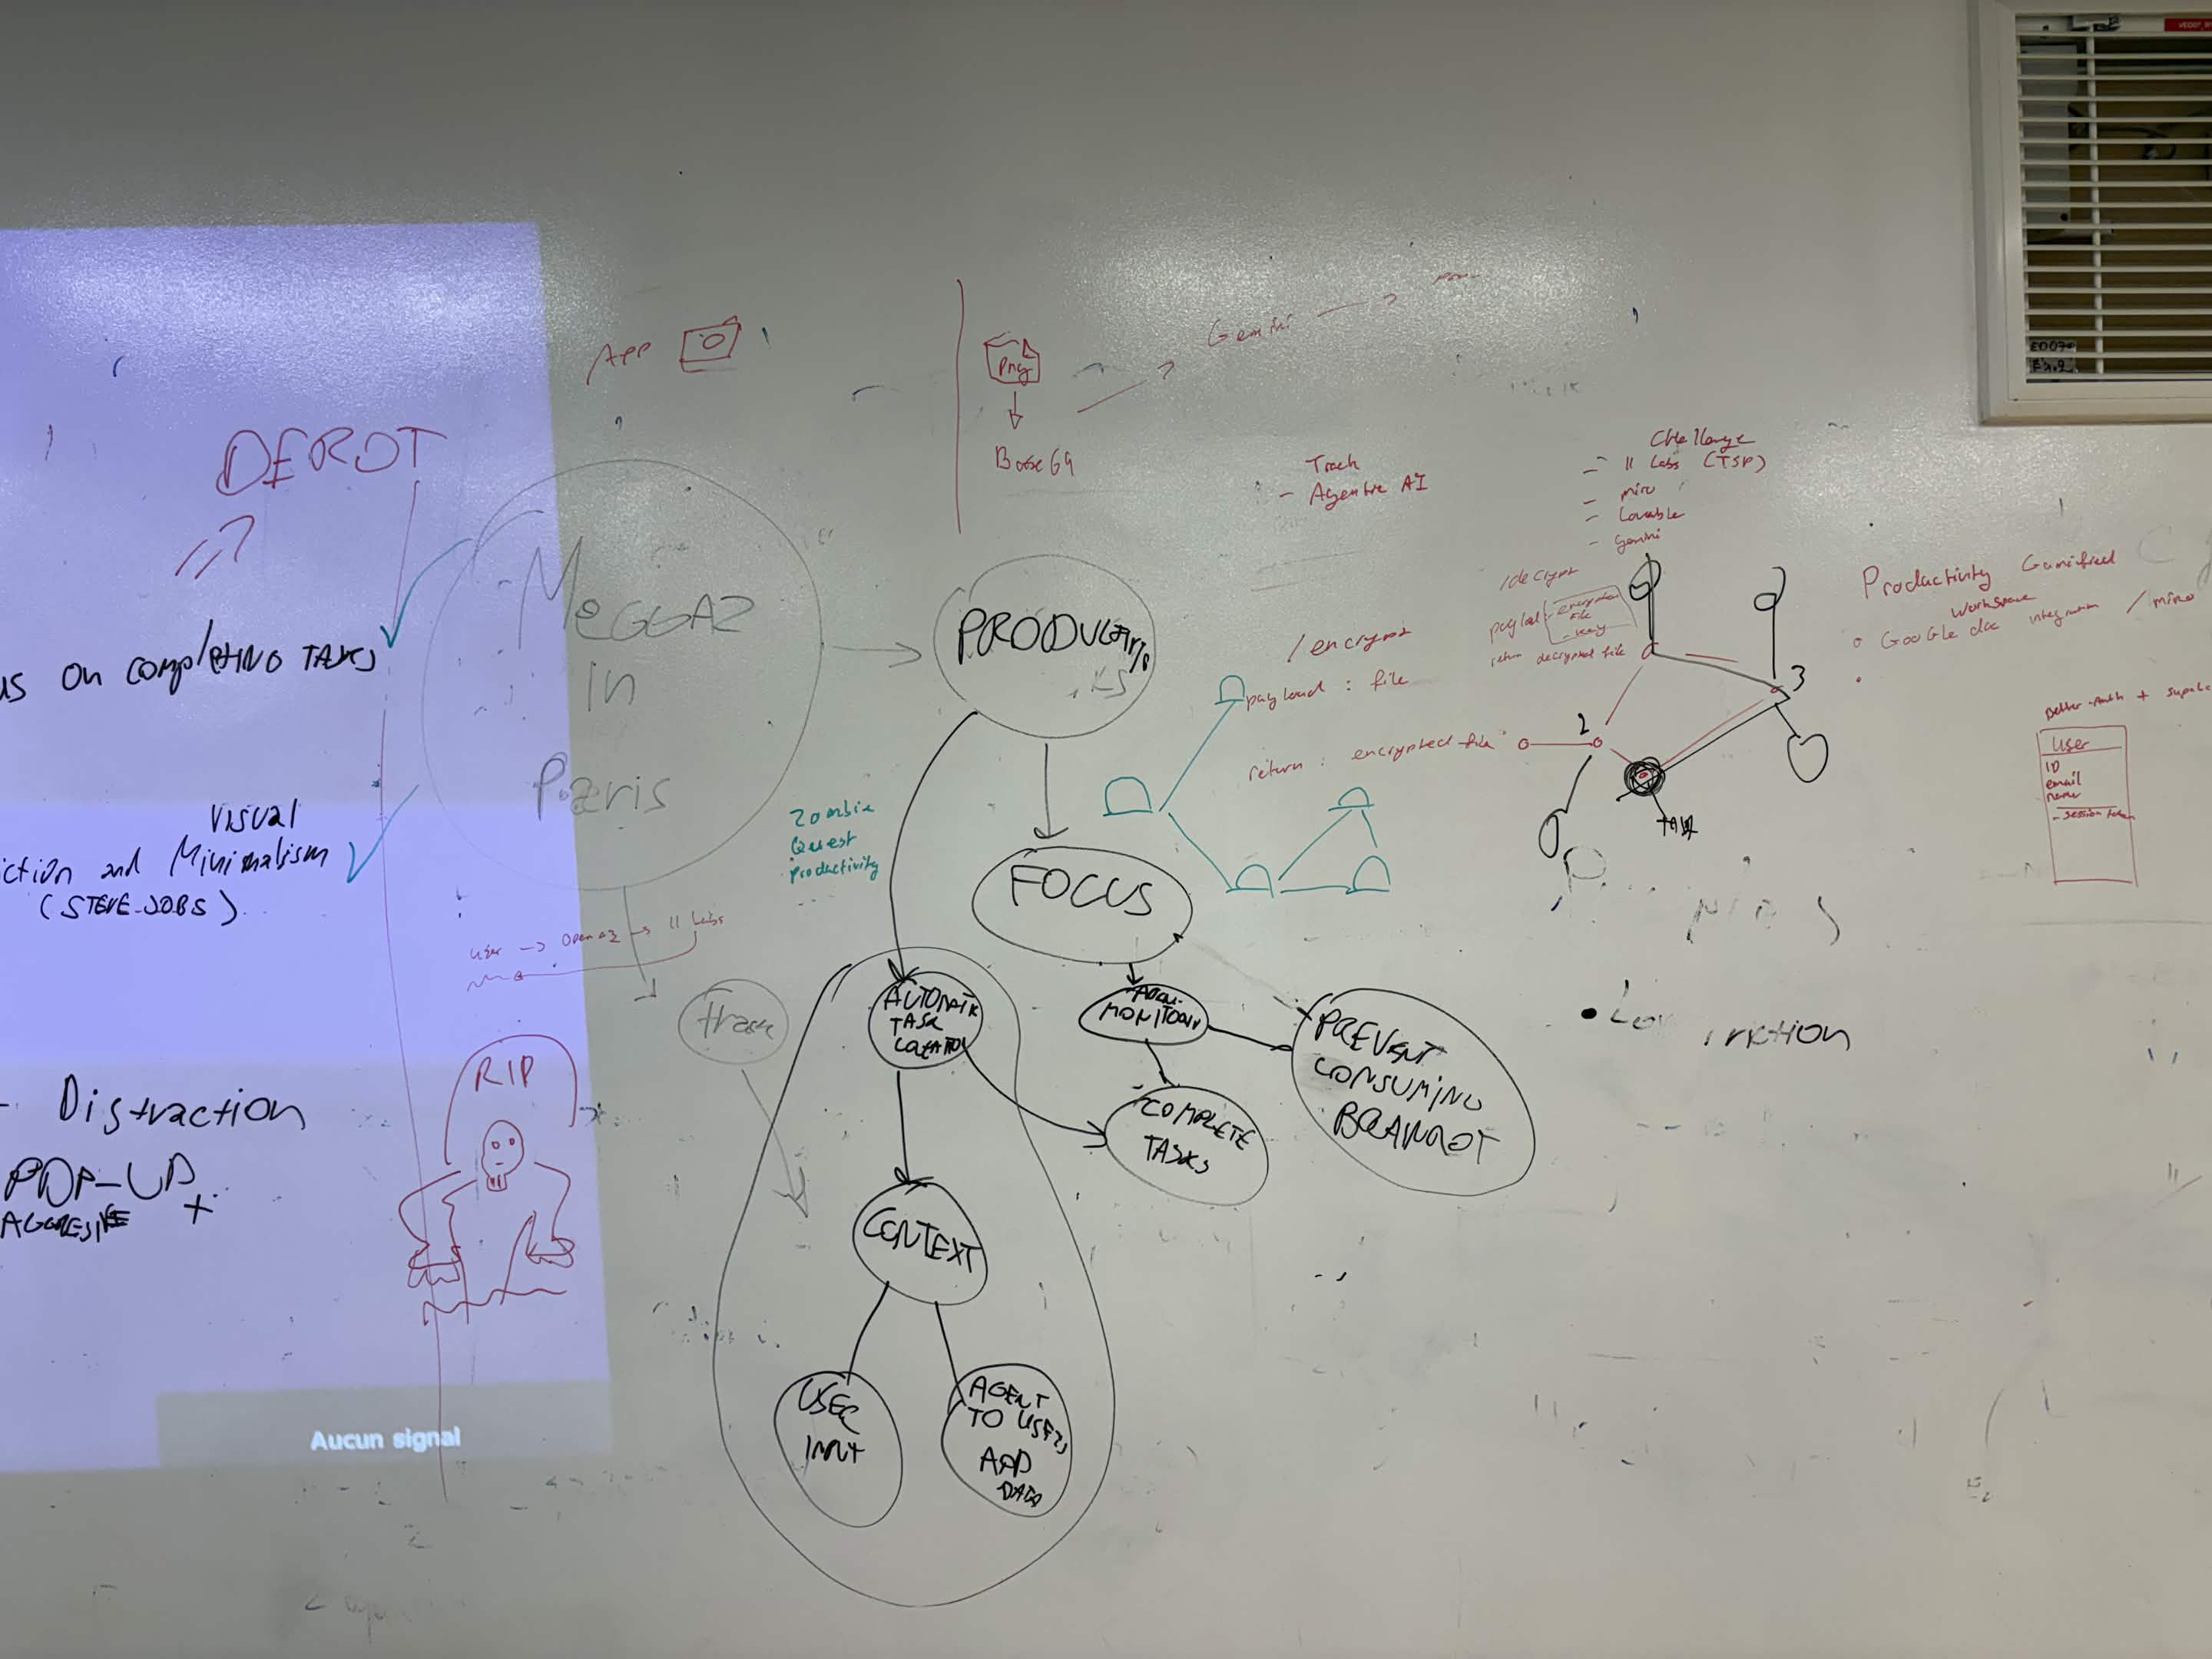 APP
Png
Base 64
Gemini
DEROT
Track
- Agentic AI
Challenge
- 11 Labs (TSP)
- miro
- Lovable
- Gemini
MeGGAZ
in
Paris
ON COMPLETING TASKS
VISUAL
and Minimalism
(STEVE-JOBS)
- Distraction
POP-UP
AGGRESIVE +
Zombie
Quest
productivity
user → → 11 Labs
RIP
trash
FOCUS
/encrypt
payload : file
return : encrypted file
/decrypt
payload - encryption
file
- key
return decrypted file
2
3
TASK
Productivity Gamified
workspace
GOOGLE doc integration / miro
Better-Auth +
User
ID
email
name
- session token
TASK
MONITORIN
PREVENT
CONSUMING
BRAINROT
COMPLETE
TASKS
CONTEXT
USER
INPUT
AGENT
TO USERS
APP
DATA
Aucun signal